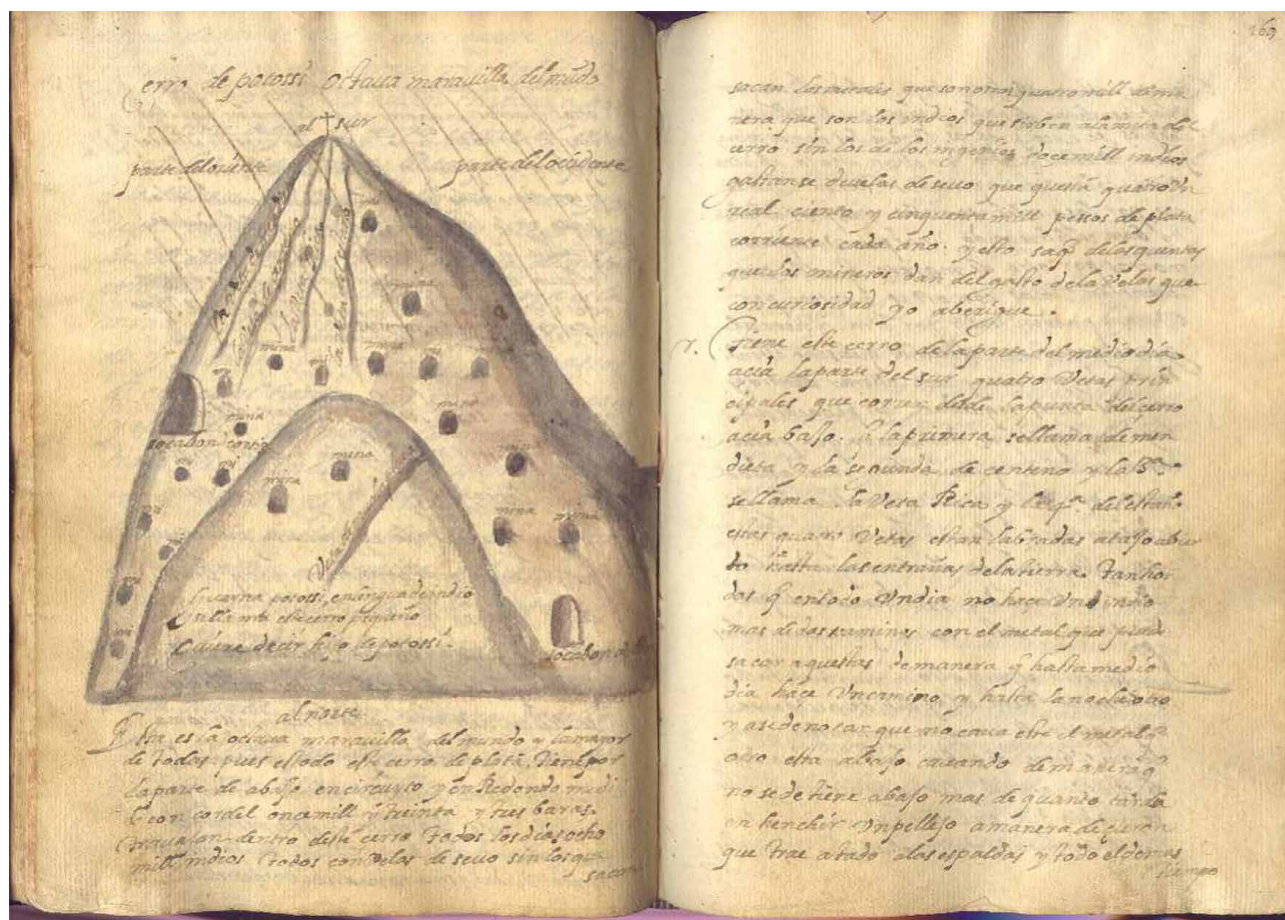 Cerro de potossi octaua marauilla del mūdo
al sur
parte del oriente
parte del ocidente
mina
mina
mina
socabon
mina
mina
mina
mina
Veta
socabon
guacna potossi, en lengua de indio
se llama este cerro pequeño
quiere decir hijo de potossi.
al norte
Esta es la octaua marauilla del mundo y la mayor
de todas pues es todo este cerro de plata. tiene por
la parte de abajo en circuyto y en Redondo medi
do con cordel once mill y treinta y tres baras.
trauajan dentro deste cerro todos los dias ocho
mill indios todos con velas de seuo sin los que
sacan
169
sacan los metales que son otros quatro mill de ma
nera que son los indios que sirben a la mita del
cerro sin los de los ingenios doce mill indios
gastanse de velas de seuo que questā quatro Un
real ciento y cinquenta mill pessos de plata
corriente cada año. y esto saq̄ de las quentas
que los mineros dan del gasto de la velas que
con curiosidad yo aberigue.
Tiene este cerro de la parte del medio dia
acia la parte del sur quatro Vetas prin
cipales que corren desde la punta del cerro
acia bajo. la primera se llama de men
dieta y la segunda de centeno y la 3ª
se llama la Veta Rica y la 4ª del estaño
estas quatro Vetas estan labradas a tajo abier
to hasta las entrañas de la tierra. tan hon
das q̄ en todo Un dia no hace Un indio
mas de dos caminos con el metal que puede
sacar a questas de manera q̄ hasta medio
dia hace Un camino y hasta la noche otro
y ase de notar que no caua este el metal q̄
otro esta abajo cauando de manera q̄
no se detiene abajo mas de quanto tarda
en henchir Un pellejo a manera de çurron
que trae atado a las espaldas y todo el demas
tiempo